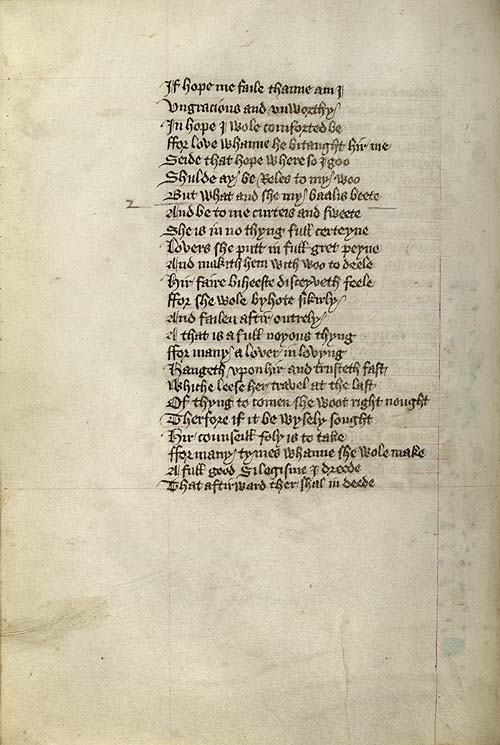 If hope me faile thanne am I
Vngracious and vnworthy
In hope I wole comforted be
ffor love whanne he bitaught hir me
Seide that hope where so I goo
Shulde ay be Reles to my woo
But what and she my baalis beete
2
And be to me curteis and sweete
She is in no thyng full certeyne
Lovers she putt in full gret peyne
And makith hem with woo to deele
Hir faire biheeste disceyveth feele
ffor she wole byhote sikirly
And failen aftir outrely
A that is a full noyous thyng
ffor many a lover in lovyng
Hangeth vpon hir and trusteth fast
Whiche leese her travel at the last
Of thyng to comen she woot right nought
Therfore if it be wysely sought
Hir counseill foly is to take
ffor many tymes whanne she wole make
A full good Silogisme I dreede
That aftirward ther shal in deede